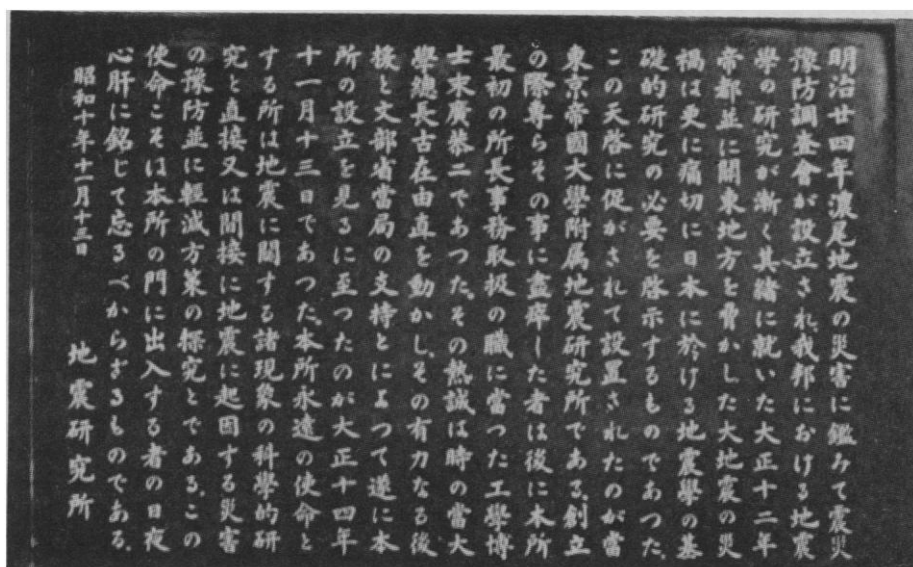 明治廿四年濃尾地震の災害に鑑みて震災
豫防調査會が設立され、我邦における地震
學の研究が漸く其緒に就いた大正十二年
帝都並に關東地方を脅かした大地震の災
禍は更に痛切に日本に於ける地震學の基
礎的研究の必要を啓示するものであつた。
この天啓に促がされて設置されたのが當
東京帝國大學附属地震研究所である。創立
の際專らその事に盡瘁した者は後に本所
最初の所長事務取扱の職に當つた工學博
士末廣恭二であつた。その熱誠は時の當大
學總長古在由直を動かし、その有力なる後
援と文部省當局の支持とによつて遂に本
所の設立を見るに至つたのが大正十四年
十一月十三日であつた。本所永遠の使命と
する所は地震に關する諸現象の科學的研
究と直接又は間接に地震に起因する災害
の豫防並に輕減方策の探究とである。この
使命こそは本所の門に出入する者の日夜
心肝に銘じて忘るべからざるものである。
昭和十年十一月十三日
地震研究所